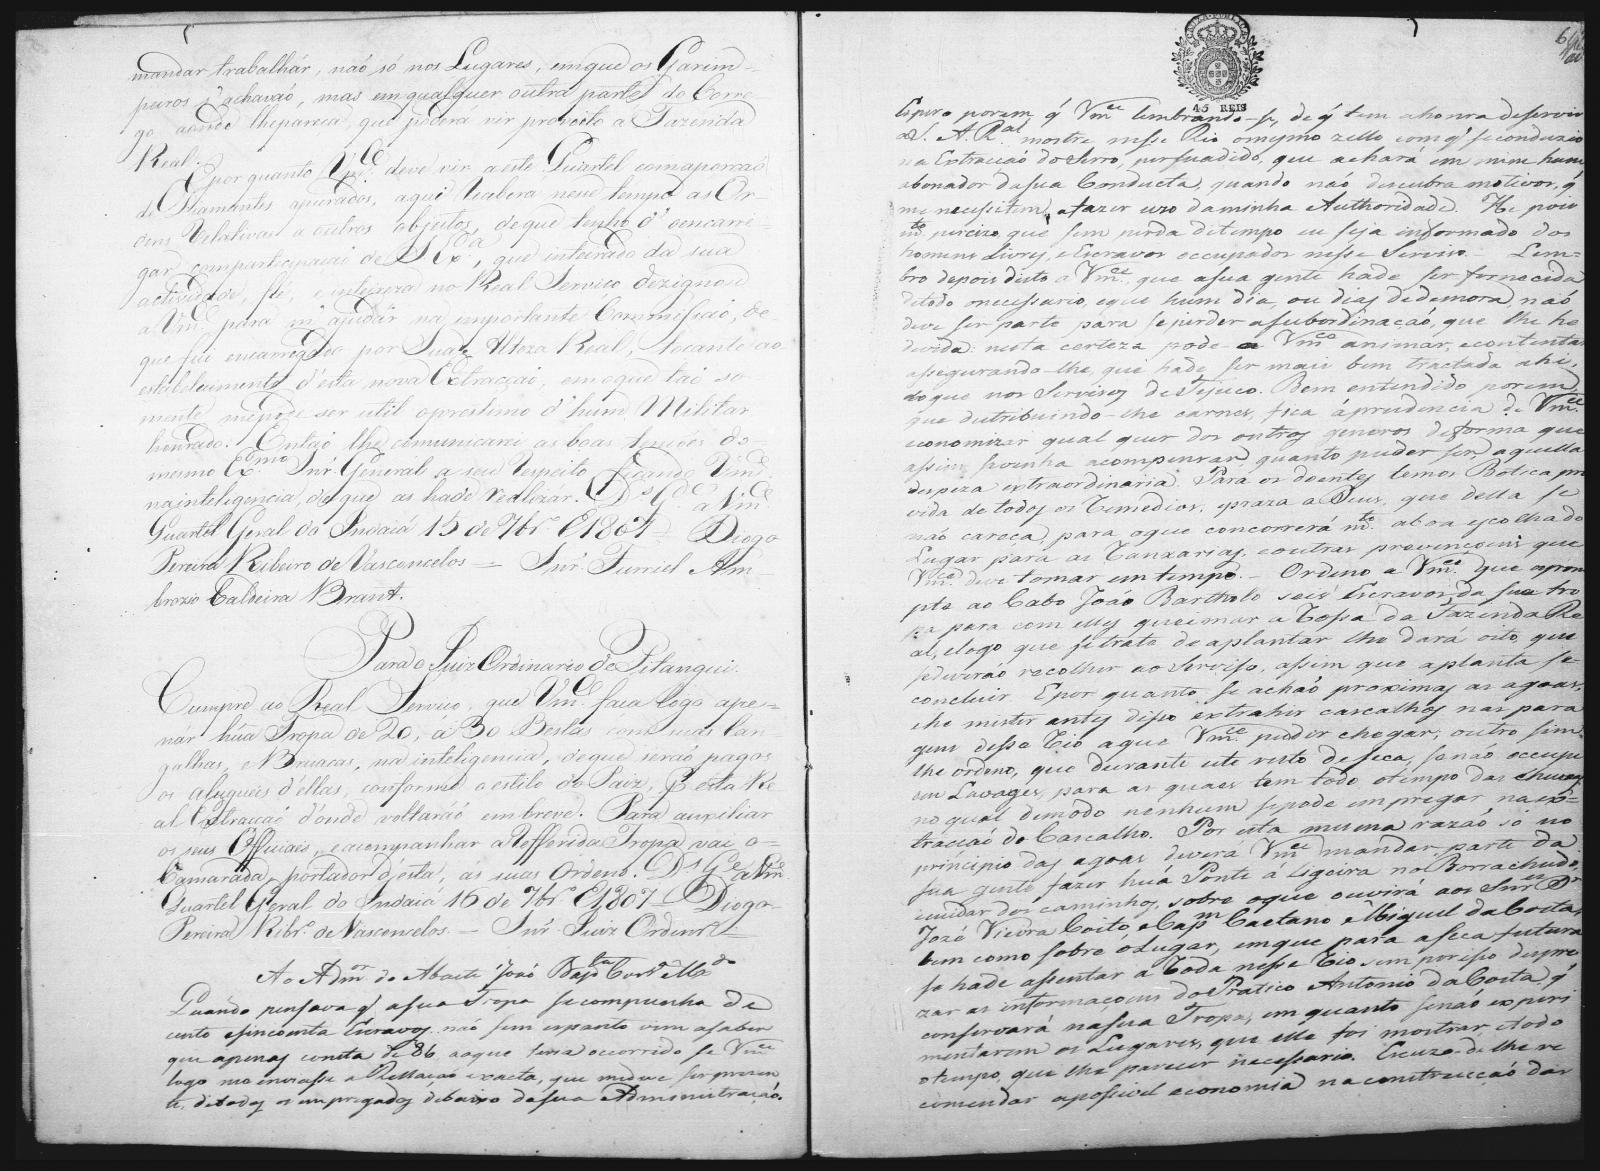 mandar trabalhar, naõ só nos Lugares, emque os Garim-
peiros s'achavaõ, mas em qualquer outra parte do Corre-
go aonde lhepareça, que poderá vir proveito a Fazenda
Real.
E por quanto Vm.ce deve vir a este Quartel com aporçaõ
de Diamantes apurados, aqui saberá nesse tempo as Or-
dens relativas a outros objectos, deque tenho d'o encarre-
gar com participaçaõ de S. Ex.cia, que inteirado da sua
actividade, fé, e inteireza no Real Serviço dezignou
a Vm.ce para m'ajudar na importante Commissaõ, de-
que fui encarregado por Sua Alteza Real, tocante ao
estabelecimento d'esta nova Extracçaõ, emque taõ so
mente mepode ser util oprestimo d'hum Militar
honrado. Entaõ lhe comunicarei as boas tençoẽs do
mesmo Ex.mo Snr. General a seu respeito ficando Vm.ce
na inteligencia, de que as hade realizar. D.s G.de a Vm.ce
Quartel Geral do Indaiá 15 de 7br.o de 1807 = Diogo
Pereira Ribeiro de Vasconcelos = Snr. Furriel Am-
brozio Caldeira Brant.
Para o Juiz Ordinario de Pitangui.
Cumpre ao Real Serviço, que Vm.ce faça logo ape-
nar húa Tropa de 20, á 30 Bestas com suas Can-
galhas, e Bruacas, na inteligencia, deque seraõ pagos
os alugueis d'ellas, conforme o estilo do Paiz, p.r esta Re
al Extracçaõ d'onde voltaráõ embreve. Para auxiliar
os seus Officiaes, e acompanhar a refferida Tropa, vai o
Camarada, portador d'esta, ás suas Ordens. D.s G.e a Vm.ce
Quartel Geral do Indaiá 16 de 7br.o de 1807 = Diogo
Pereira Ribr.o de Vasconcelos. = Snr. Juiz Ordinr.o =
Ao Adm.or do Abaete Joaõ Bap.ta
Quando pensava q' asua Tropa se compunha de
cento e sincoenta Escravos, naõ sem espanto vim asaber
que apenas consta de 86 aoque teria occorrido se Vm.ce
logo me enviasse a Rellaçaõ exacta, que medeve ser prezen
te, detodos os empregados debaixo desua Administraçaõ.
45 REIS
Espero porem q' Vm.ce lembrando-se, de q' tem ahonra deservir
a S. A. R.al mostre nesse Rio omesmo zello com q' seconduzio
na Extracçaõ do Serro, persuadido, que achará em mim hum
abonador dasua Conducta, quando naõ descubra motivos, q'
me necessitem, afazer uzo daminha Authoridade. He pois
m.to percizo, que sem perda detempo eu seja informado dos
homens Livres, e Escravos occupados nesse Serviço. Lem-
bro depois disto a Vm.ce que asua gente hade ser fornecida
detodo onecessario, eque hum dia, ou dias dedemora naõ
deve ser parte para seperder asubordinaçaõ, que lhe he
devida: nesta certeza pode Vm.ce animar, econtentar
assegurando-lhe, que hade ser mais bem tractada ahi,
doque nos Serviços de Tejuco. Bem entendido porem,
que destribuindo-lhe carnes, fica áprudencia de Vm.ce
economizar qual quer dos outros generos deforma que
assim sevenha acompensar, quanto puder ser, aquella
despeza extraordinaria. Para os doentes temos Botica pro
vida de todos os remedios, praza a Deus, que della se
naõ careça, para oque concorrerá m.to aboa escolha do
Lugar para as Ranxarias, eoutras providencias que
Vm.ce deve tomar emtempo. Ordeno a Vm.ce que apron
pte ao Cabo Joaõ Bartholo seis Escravos da sua tro
pa para com elles queimar a Rossa da Fazenda Re
al, elogo que setrate deaplantar lhe dará oito, que
sedeveraõ recolher ao Serviço, assim que aplanta se
concluir. Epor quanto se achaõ proximas as agoas,
he mister antes disso extrahir cascalhos nas para
gens desse Rio aque Vm.ce puder chegar; outro sim
lhe ordeno, que durante este resto deseca, senaõ occupe
em Lavages, para as quaes tem todo otempo das chuvas,
no qual demodo nenhum sepode empregar naex-
tracçaõ do Cascalho. Por esta mesma razaõ só no
principio das agoas deverá Vm.ce mandar parte da
sua gente fazer huá Ponte á Ligeira no Borrachudo,
ecuidar dos caminhos, sobre oque ouvirá aos Snr.es D.r
Jozé Vieira Couto, e Cap.m Caetano Miguel da Costa,
bem como sobre oLugar, emque para aseca futura
se hade assentar a Roda nesse Rio sem porisso despre
zar as informaçoens do Pratico Antonio da Costa, q'
conservará nasua Tropa, em quanto senaõ experi
mentarem os Lugares, que elle foi mostrar, etodo
otempo, que lhe parecer necessario. Escuzo de lhe re
comendar apossivel economia na construcçaõ das